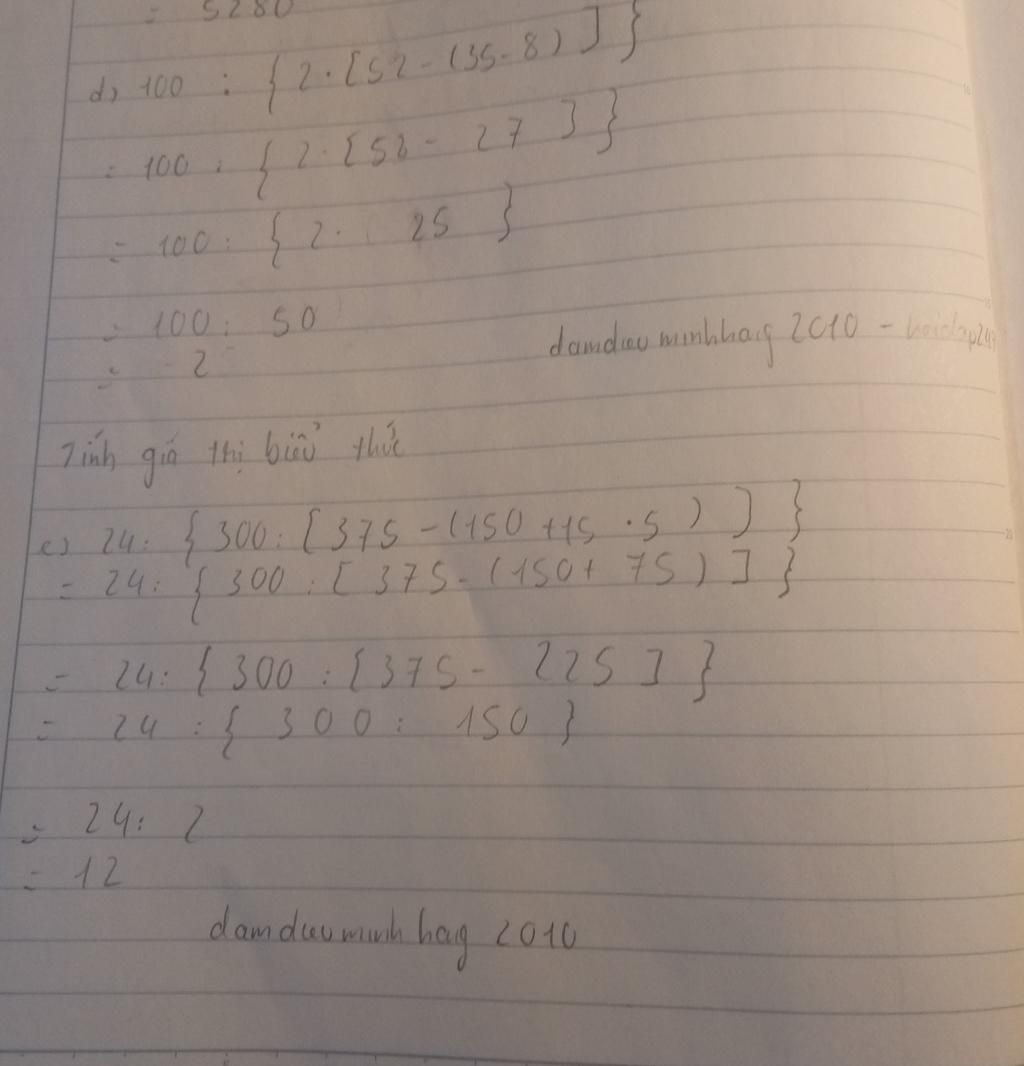 = 5280
d) 100 : { 2 . [ 52 - (35 - 8) ] }
= 100 : { 2 . [ 52 - 27 ] }
= 100 : { 2 . 25 }
= 100 : 50
= 2
damdieuminhhaig 2010 - hoidap247
Tính giá thị biểu thức
e) 24 : { 300 : [ 375 - (150 + 15 . 5 ) ] }
= 24 : { 300 : [ 375 - (150 + 75 ) ] }
= 24 : { 300 : [ 375 - 225 ] }
= 24 : { 300 : 150 }
= 24 : 2
= 12
damdieuminhhaig 2010